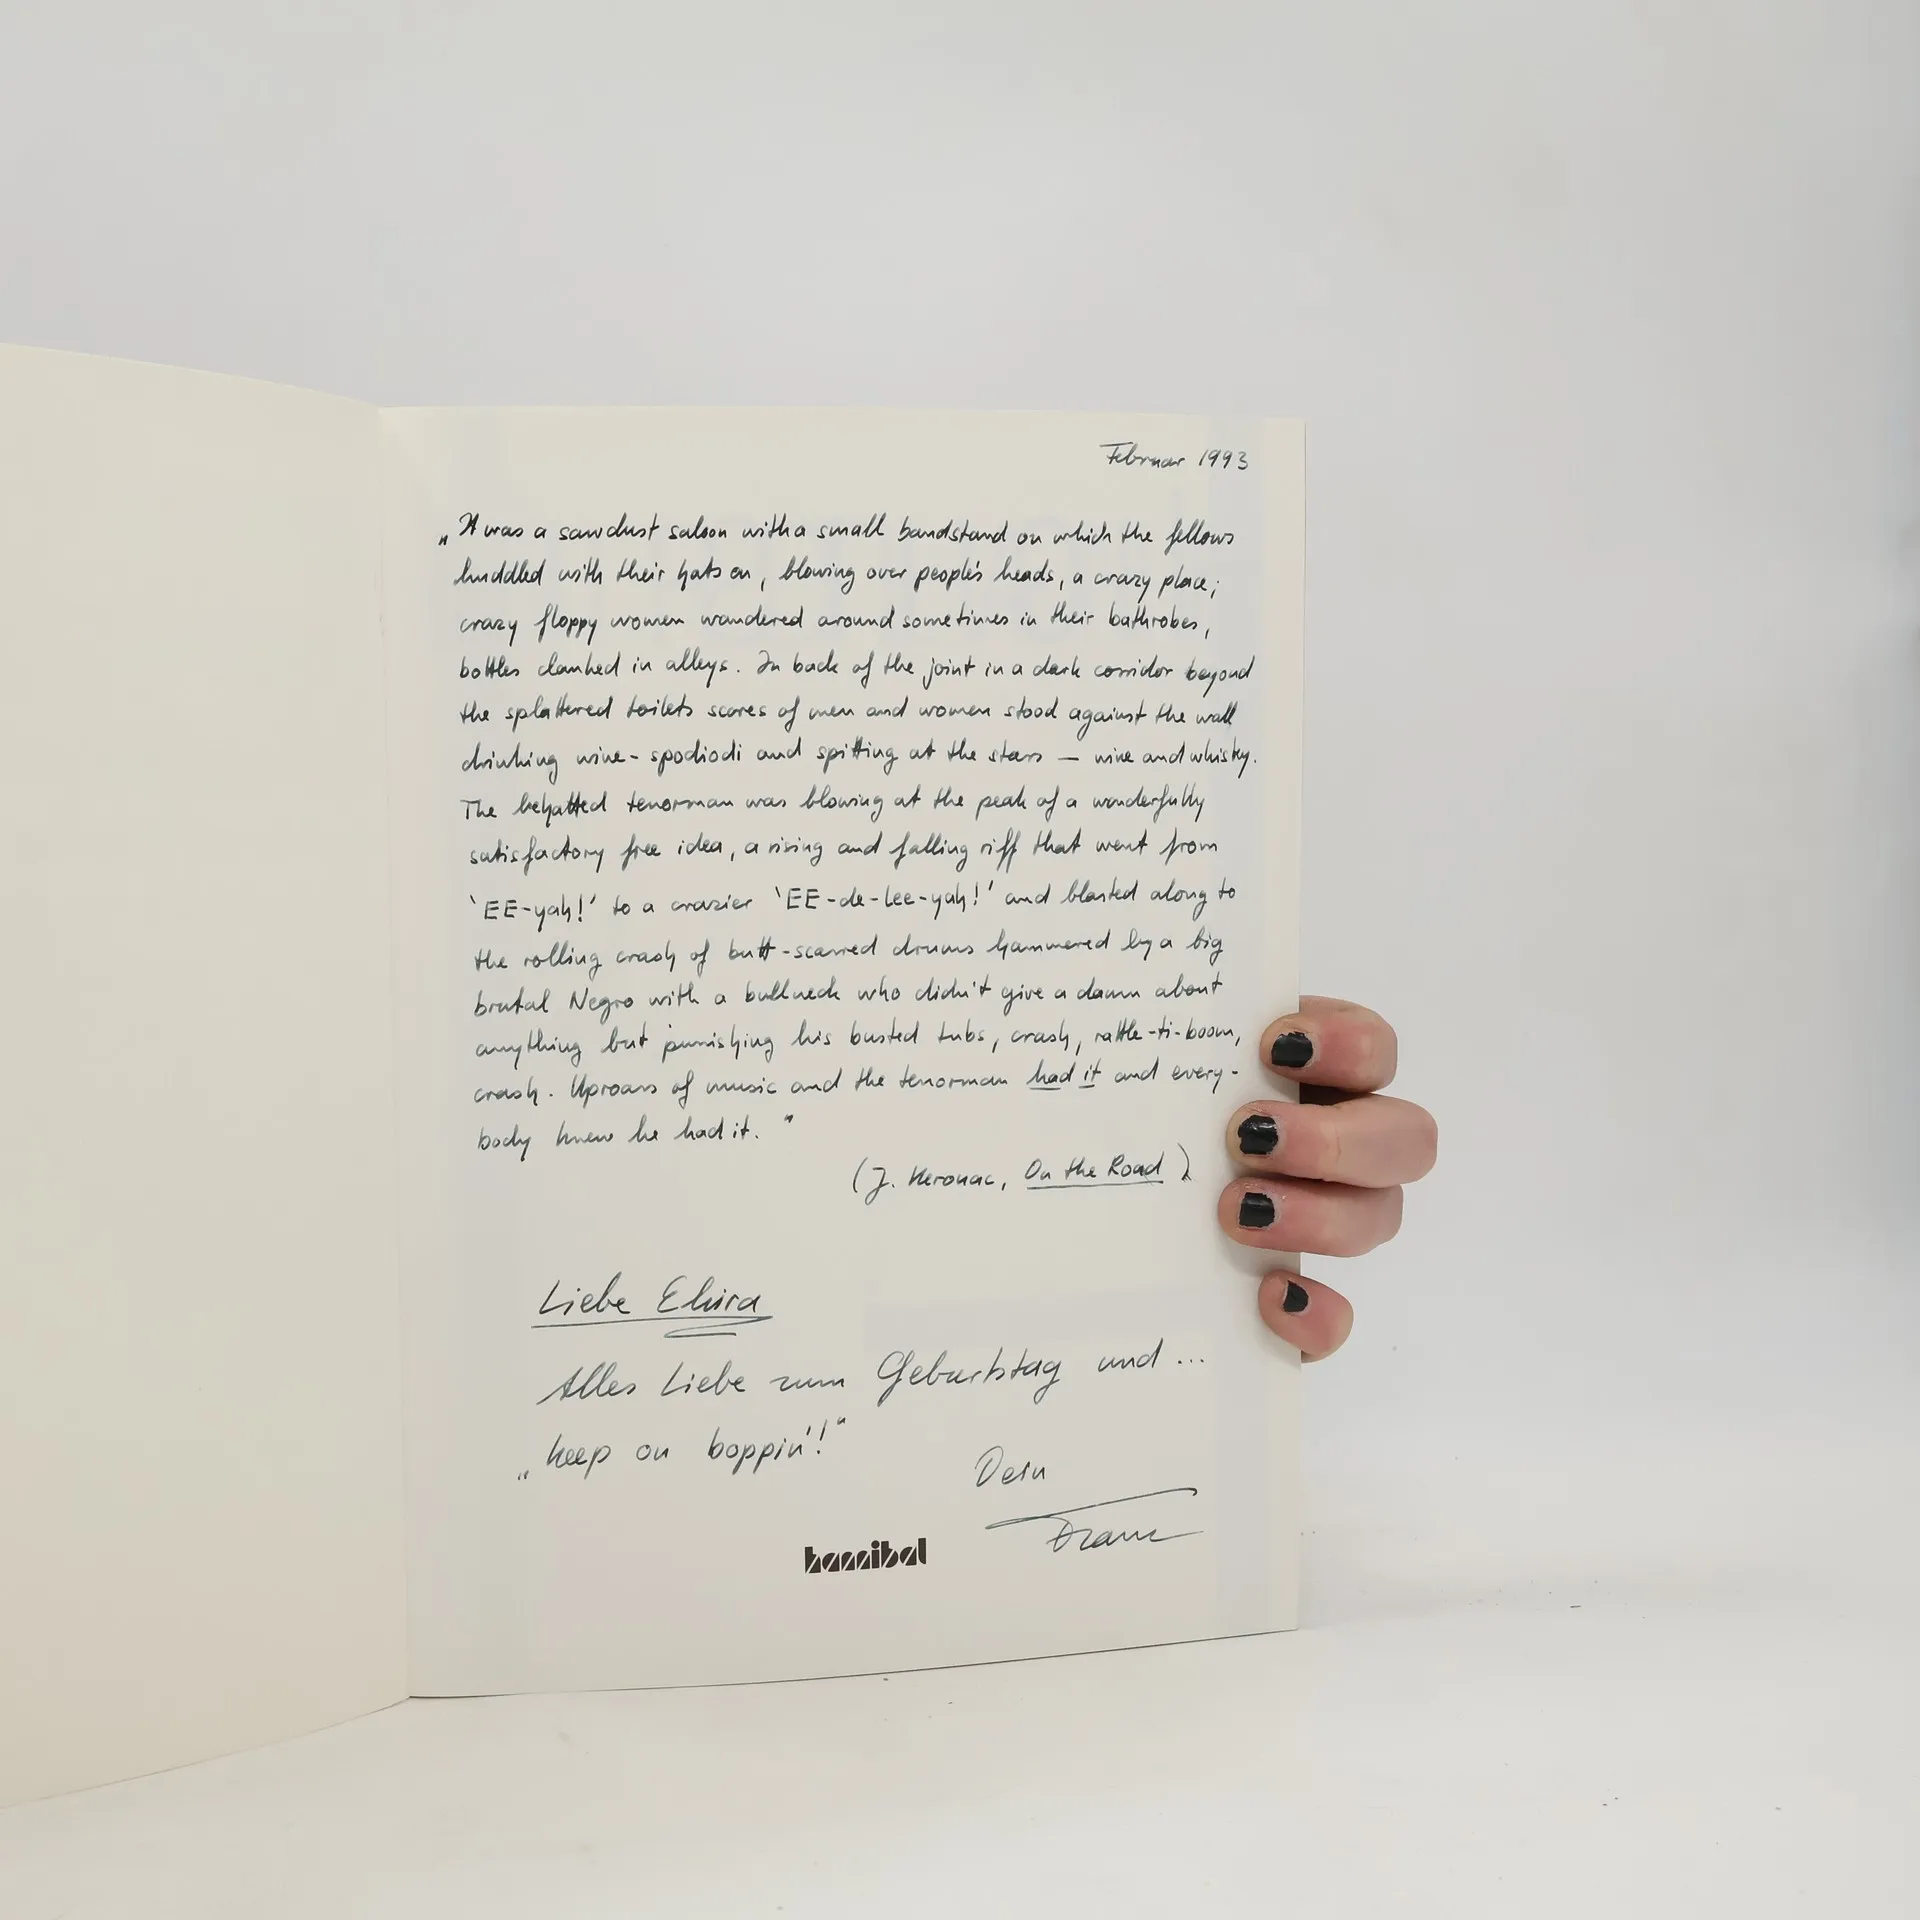 Februar 1993
„It was a sawdust saloon with a small bandstand on which the fellows
huddled with their hats on, blowing over people's heads, a crazy place;
crazy floppy women wandered around sometimes in their bathrobes,
bottles clanked in alleys. In back of the joint in a dark corridor beyond
the splattered toilets scores of men and women stood against the wall
drinking wine-spodiodi and spitting at the stars — wine and whisky.
The behatted tenorman was blowing at the peak of a wonderfully
satisfactory free idea, a rising and falling riff that went from
'EE-yah!' to a crazier 'EE-de-lee-yah!' and blasted along to
the rolling crash of butt-scarred drums hammered by a big
brutal Negro with a bullneck who didn't give a damn about
anything but punishing his busted tubs, crash, rattle-ti-boom,
crash. Uproars of music and the tenorman had it and every-
body knew he had it."
(J. Kerouac, On the Road)
Liebe Elvira
Alles Liebe zum Geburtstag und ...
„keep on boppin'!"
Dein
Franz
hannibal